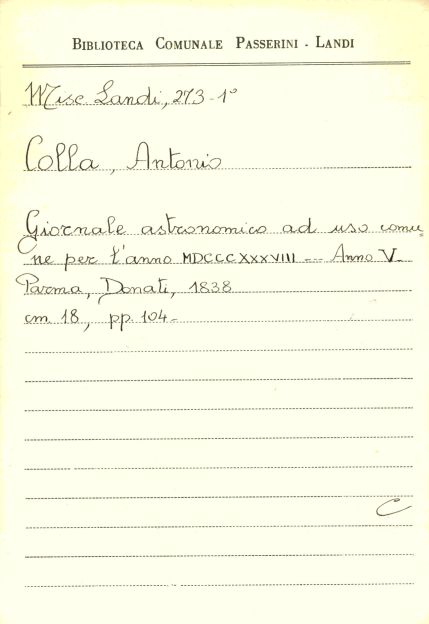 BIBLIOTECA COMUNALE PASSERINI - LANDI
Misc Landi, 273-1°
Colla, Antonio
Giornale astronomico ad uso comu-
ne per l'anno MDCCCXXXVIII --- Anno V-
Parma, Donati, 1838
cm 18, pp. 104-
C